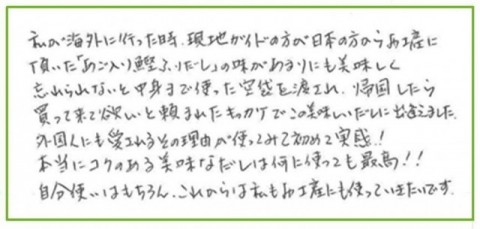 私が海外に行った時、現地ガイドの方が日本の方からお土産に
頂いた「あご入り鰹ふりだし」の味があまりにも美味しく
忘れられないと中身まで使った空袋を渡され、帰国したら
買って来て欲しいと頼まれたキッカケでこの美味しいだしに出逢えました。
外国人にも愛されるその理由が使ってみて初めて実感!
本当にコクのある美味なだしは何に使っても最高!!
自分使いはもちろん、これからは私もお土産にも使っていきたいです。